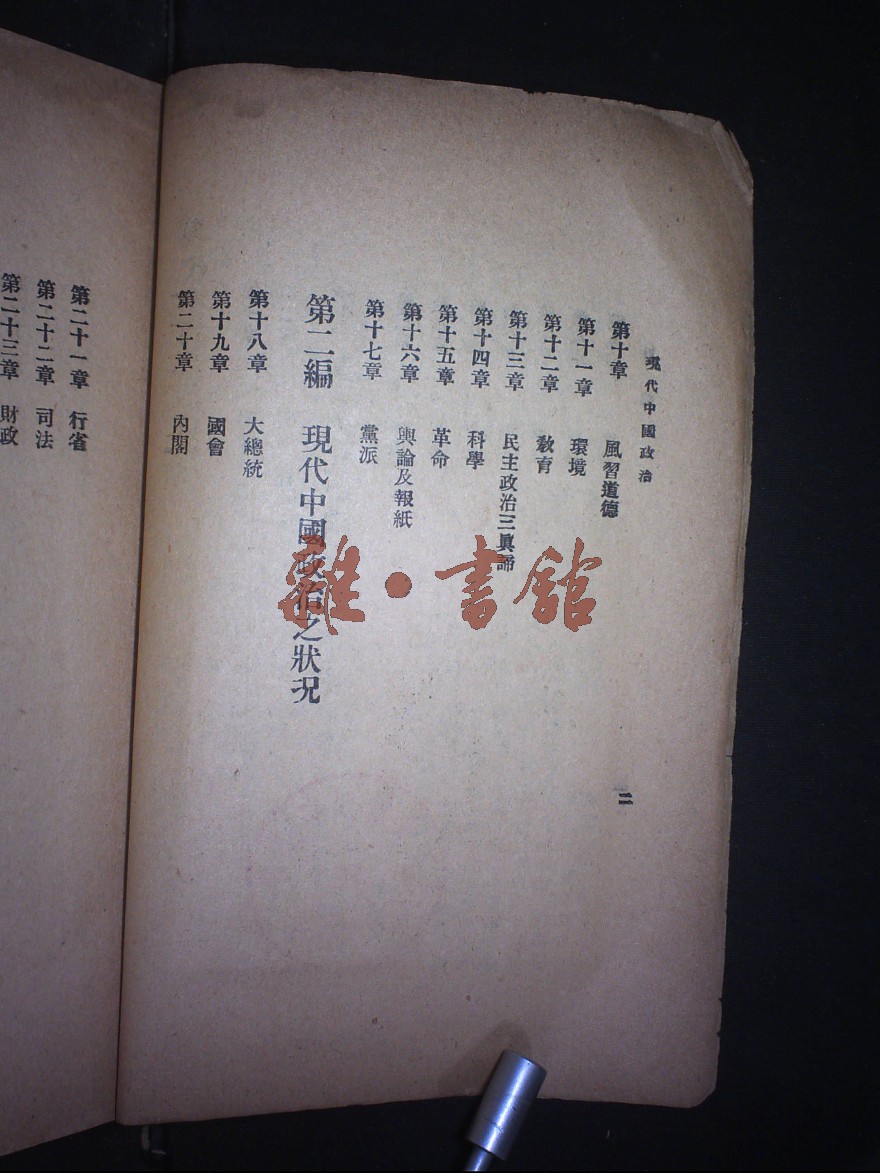 現代中國政治
二
第十章 風習道德
第十一章 環境
第十二章 教育
第十三章 民主政治三眞諦
第十四章 科學
第十五章 革命
第十六章 輿論及報紙
第十七章 黨派
第二編 現代中國政治之狀況
第十八章 大總統
第十九章 國會
第二十章 內閣
第二十一章 行省
第二十二章 司法
第二十三章 財政
雜·書館